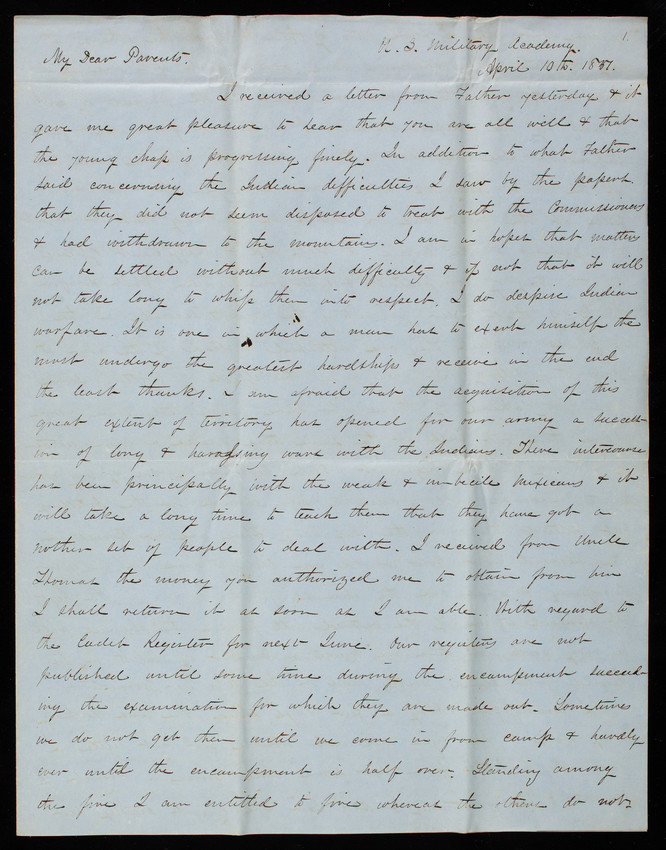 1
U. S. Military Academy.
April 10th. 1851.
My Dear Parents.
I received a letter from Father yesterday & it
gave me great pleasure to hear that you are all well & that
the young chap is progressing finely. In addition to what Father
said concerning the Indian difficulties I saw by the papers
that they did not seem disposed to treat with the Commissioners
& had withdrawn to the mountains. I am in hopes that matters
can be settled without much difficulty & if not that it will
not take long to whip them into respect. I do despise Indian
warfare. It is one in which a man has to exert himself the
most undergo the greatest hardships & receive in the end
the least thanks. I am afraid that the acquisition of this
great extent of territory has opened for our army a success-
ion of long & harassing wars with the Indians. There intercourse
has been principally with the weak & imbecile Mexicans & it
will take a long time to teach them that they have got a
nother set of people to deal with. I received from Uncle
Thomas the money you authorized me to obtain from him
I shall return it as soon as I am able. With regard to
the Cadet Register for next June. Our registers are not
published until some time during the encampment succeed-
ing the examination for which they are made out. Sometimes
we do not get them until we come in from camp & hardly
ever until the encampment is half over. Standing among
the five I am entitled to five whereas the others do not